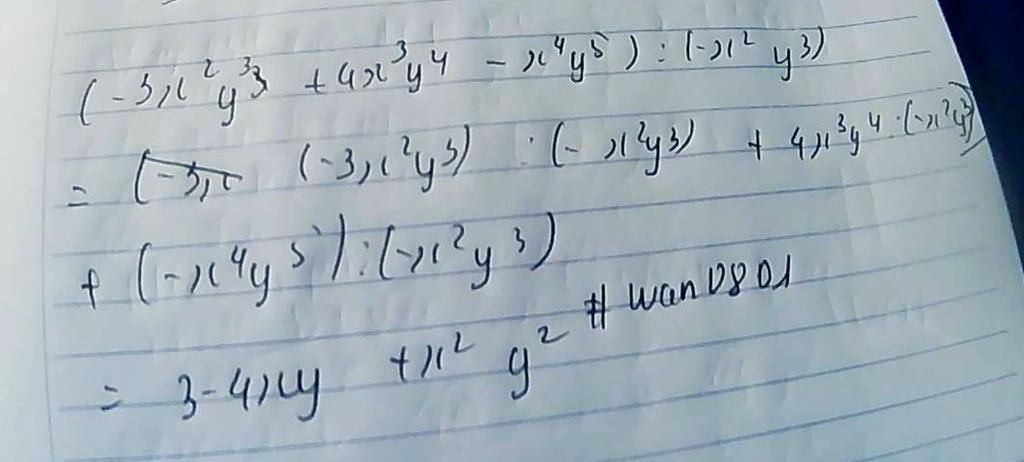 (-3x²y³ + 4x³y⁴ - x⁴y⁵) : (-x² y³)
= (-3x (-3x²y³) : (- x²y³) + 4x³y⁴ : (-x²y³)
+ (-x⁴y⁵) : (-x²y³)
= 3-4xy + x² y² # wan0801